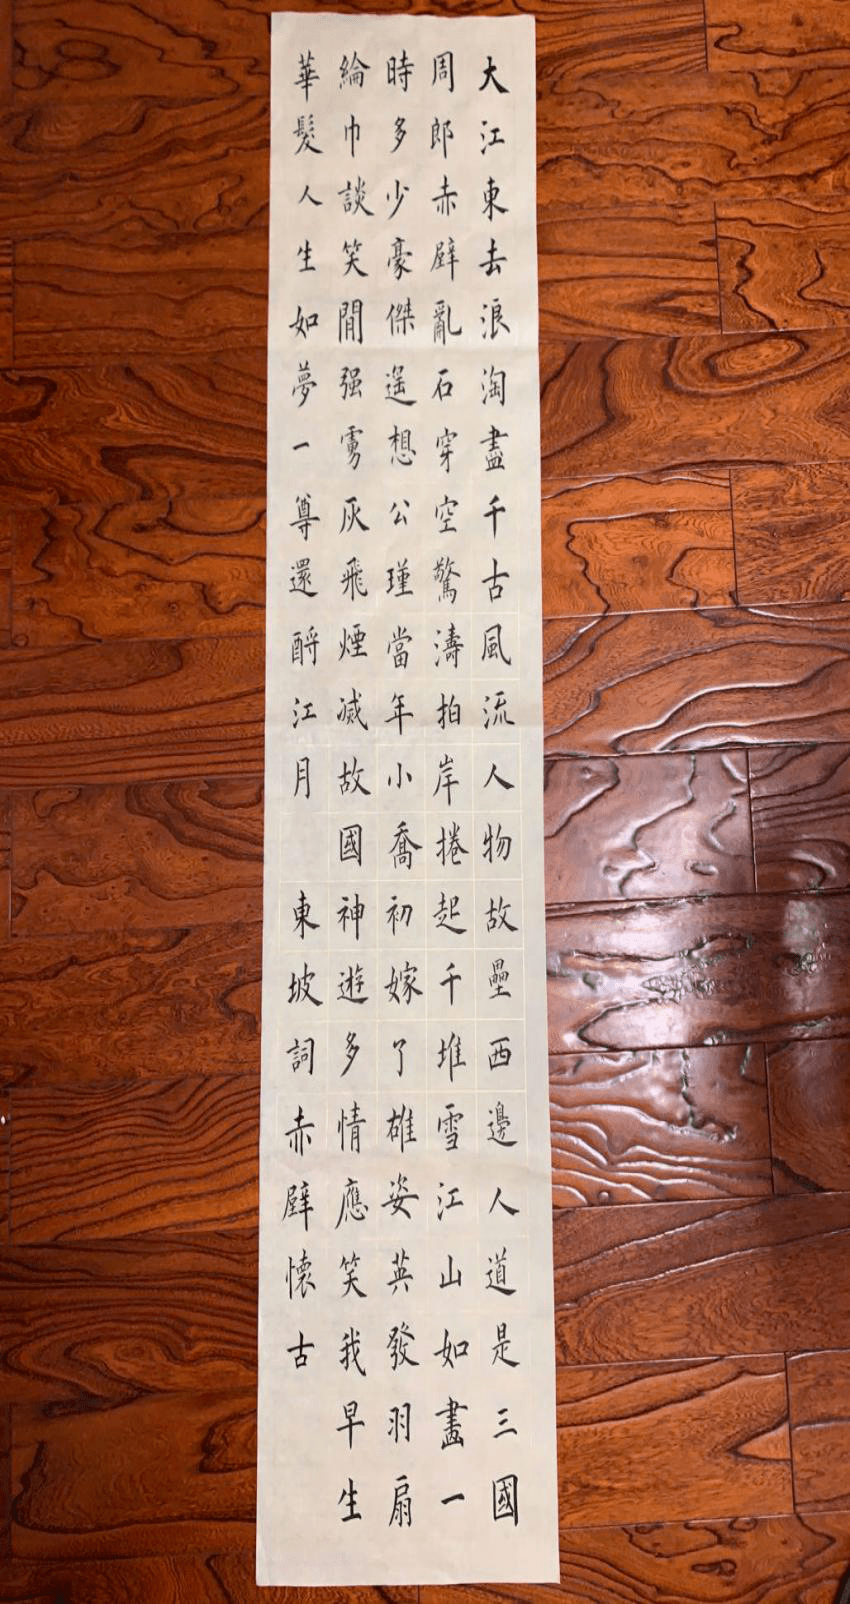 大江東去浪淘盡千古風流人物故壘西邊人道是三國
周郎赤壁亂石穿空驚濤拍岸捲起千堆雪江山如畫一
時多少豪傑遥想公瑾當年小喬初嫁了雄姿英發羽扇
綸巾談笑閒强虜灰飛煙滅故國神遊多情應笑我早生
華髮人生如夢一尊還酹江月 東坡詞赤壁懷古